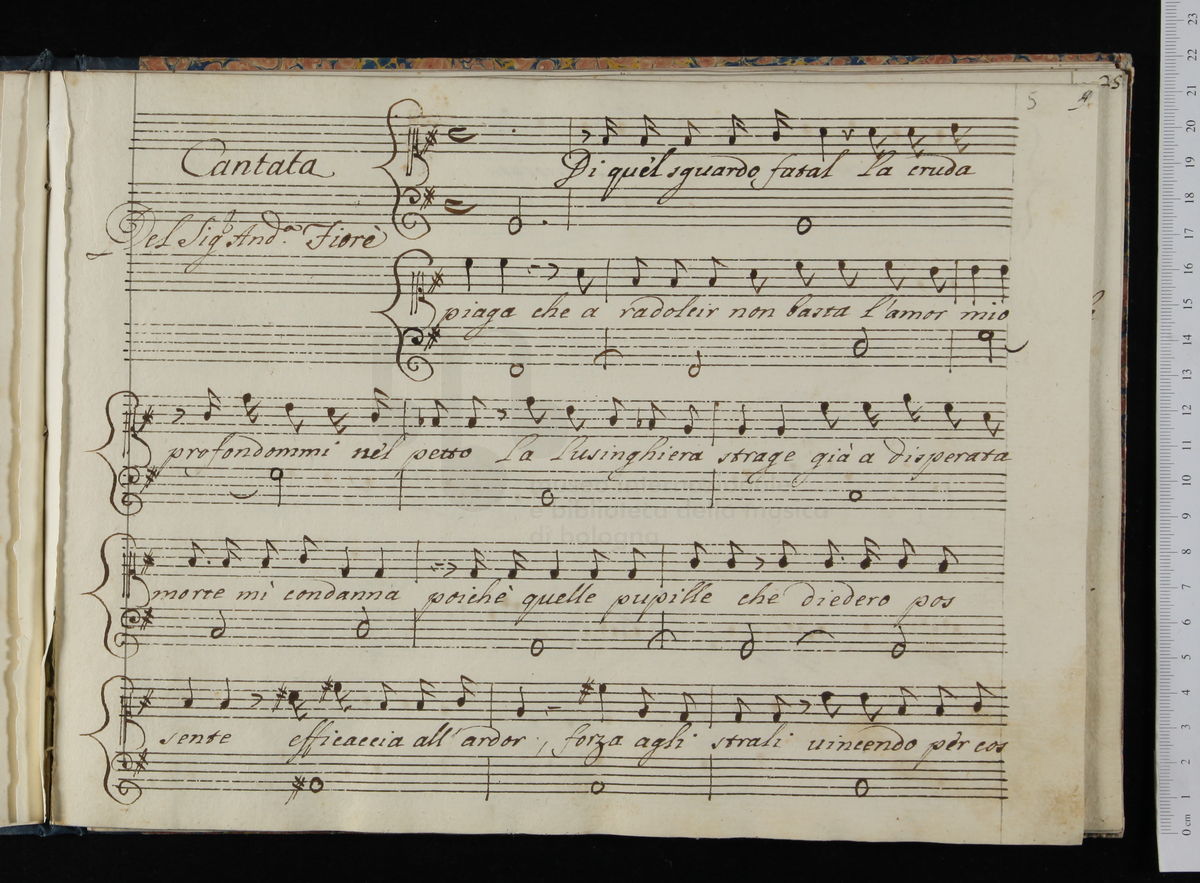 5 4 25
Cantata
Di quel sguardo fatal la cruda
Del Sig.r And.a Fiorè
piaga che a radolcir non basta l'amor mio
profondommi nel petto la lusinghiera strage già a disperata
e biblioteca della musica
di bologna
morte mi condanna poichè quelle pupille che diedero pos
sente efficaccia all'ardor, forza agli strali vincendo pèr cos
0 cm 1 2 3 4 5 6 7 8 9 10 11 12 13 14 15 16 17 18 19 20 21 22 23